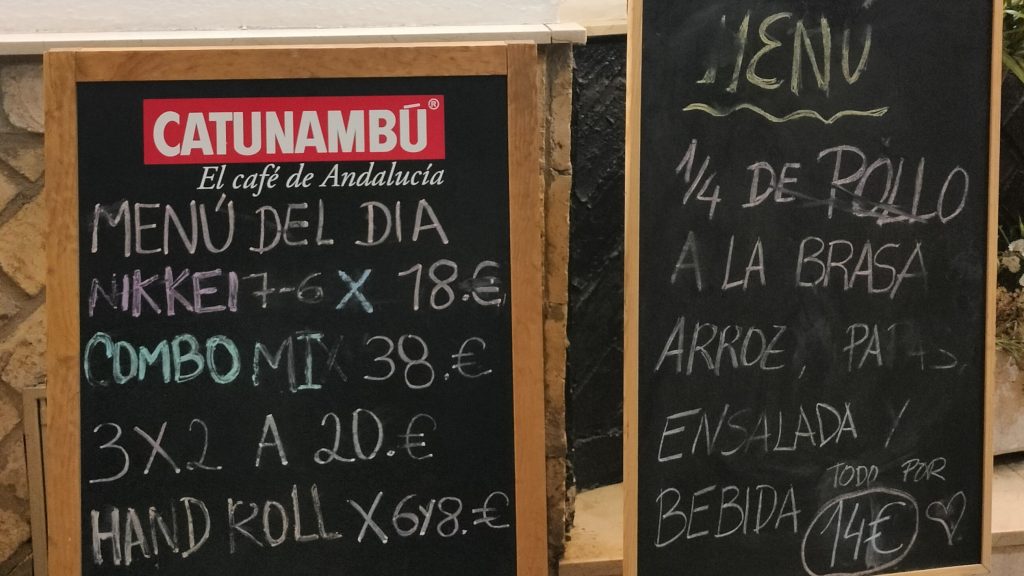 CATUNAMBÚ®
El café de Andalucía
MENÚ DEL DIA
NIKKEI 7-6 X 18.€
COMBO MIX 38.€
3X2 A 20.€
HAND ROLL X 6y8.€
MENÚ
1/4 DE ROLLO
A LA BRASA
ARROZ, PATAS,
ENSALADA Y
BEBIDA TODO POR
14€